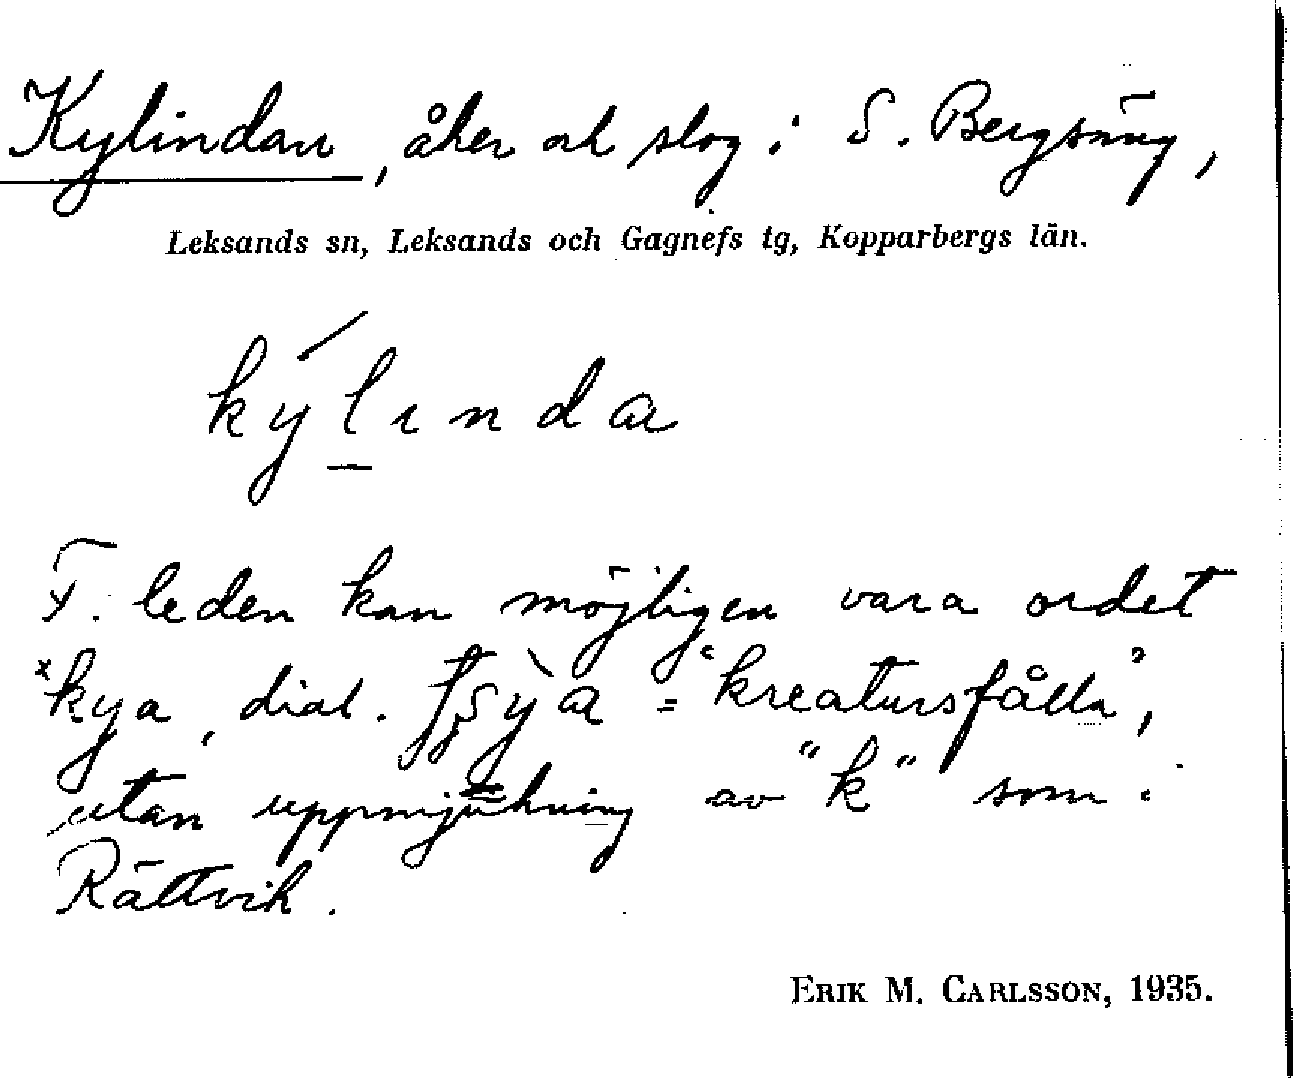 Kylindan, åker och slog i S. Bergsäng,
Leksands sn, Leksands och Gagnefs tg, Kopparbergs län.
kýlında
F. leden kan möjligen vara ordet
*kya, dial. = "kreatursfålla",
utan uppmjukning av "k" som i
Rättvik.
ERIK M. CARLSSON, 1935.